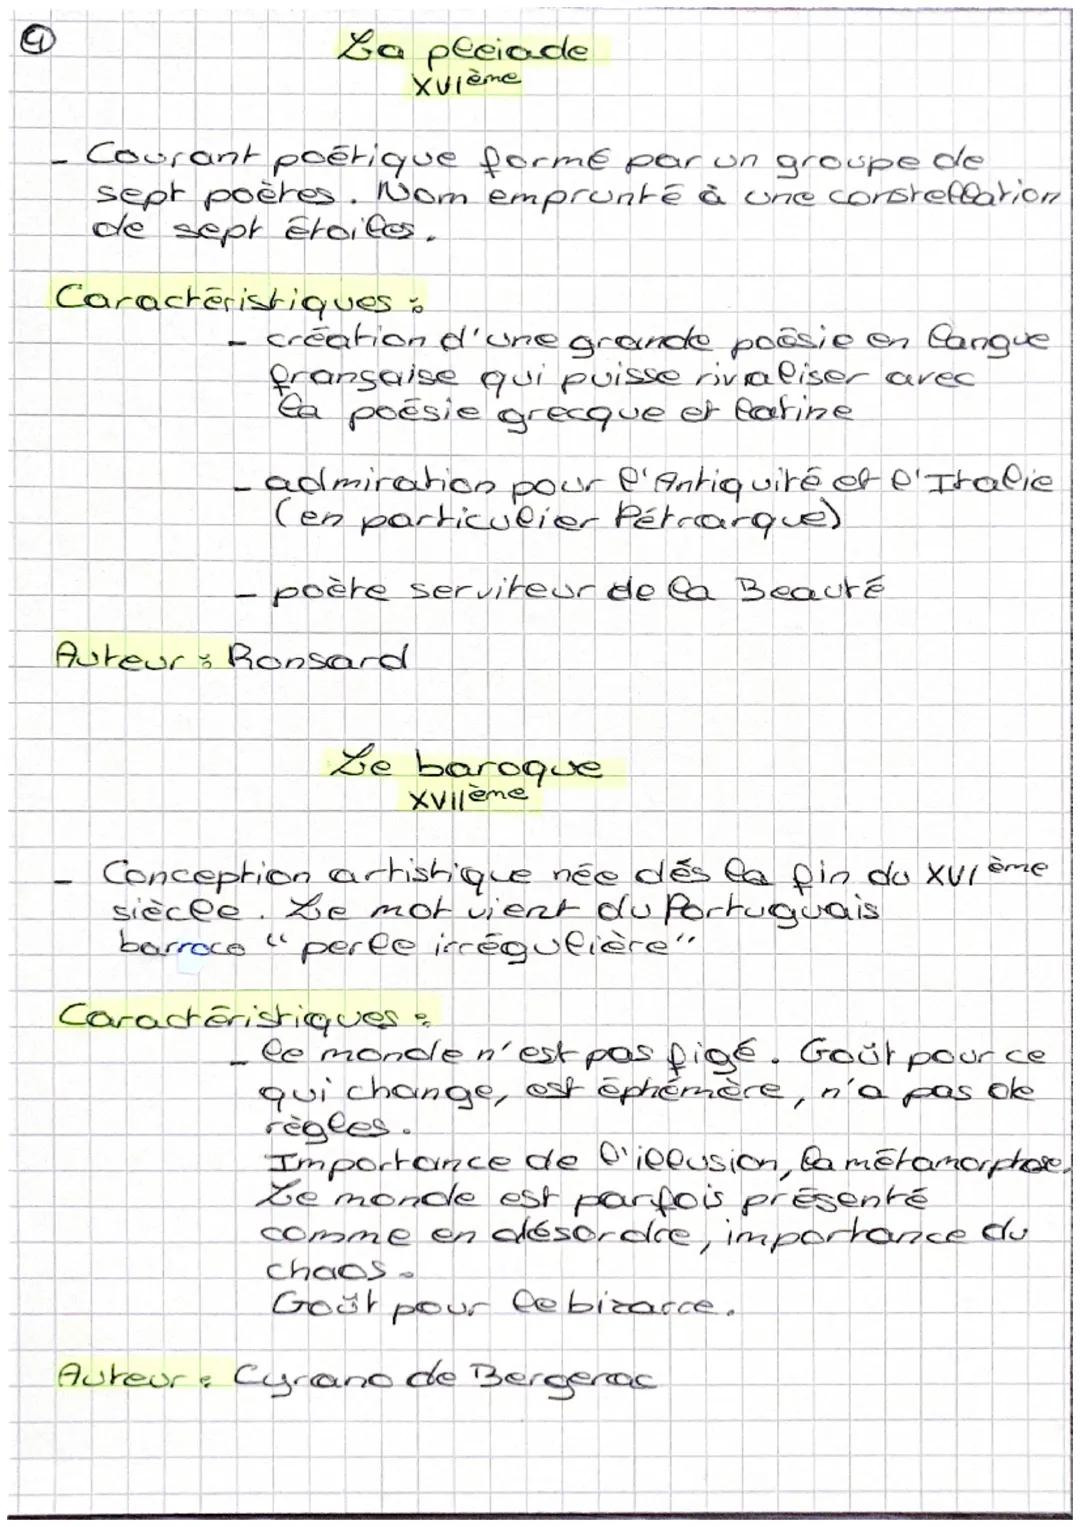 ①
La pleiade
XVIème
- Courant poétique formé par un groupe de
sept poètes. Nom emprunté à une constellation
de sept étoiles.
Caractéristiques :
- création d'une grande poésie en langue
française qui puisse rivaliser avec
la poésie grecque et latine
- admiration pour l'Antiquité et l'Italie
(en particulier Pétrarque)
- poète serviteur de la Beauté
Auteur : Ronsard
Le baroque
XVIIème
- Conception artistique née dés la fin du XVIème
siècle. Le mot vient du Portuguais
barroco "perle irrégulière"
Caractéristiques :
- le monde n'est pas figé. Goût pour ce
qui change, est éphémère, n'a pas de
règles.
Importance de l'illusion, la métamorphose.
Le monde est parfois présenté
comme en désordre, importance du
chaos.
Goût pour le bizarre.
Auteur : Cyrano de Bergerac